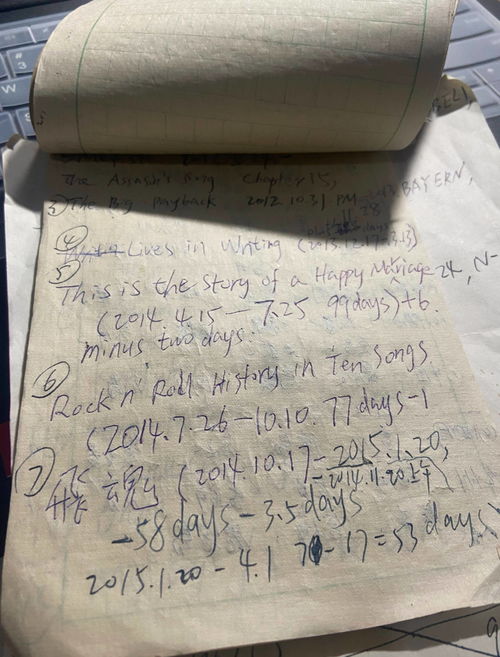 The Assassin's Song Chapter 15,
③ The Big Payback 2012.10.31 PM BAYERN,
28
④ Lives in Writing (2013.12.17-3.13)
⑤ This is the story of a Happy Marriage 24, N-
(2014.4.15-7.25 99days)+6.
minus two days.
⑥ Rock n' Roll History in Ten Songs
(2014.7.26-10.10. 77days-1
⑦ 魂 (2014.10.17-2015.1.20,
-2014.11.20
-58days-3.5days
2015.1.20-4.1 -17=53 days